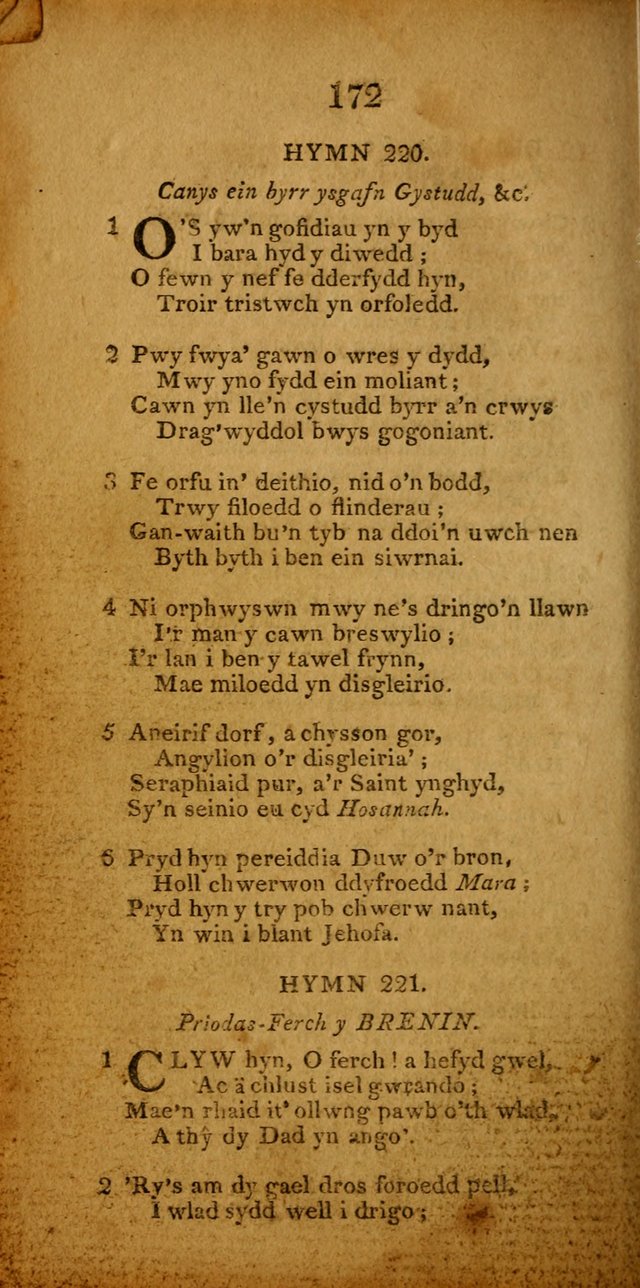 172
HYMN 220.
Canys ein byrr ysgafn Gystudd, &c.
1 O'S yw'n gofidiau yn y byd
I bara hyd y diwedd ;
O fewn y nef fe dderfydd hyn,
Troir tristwch yn orfoledd.
2 Pwy fwya' gawn o wres y dydd,
Mwy yno fydd ein moliant ;
Cawn yn lle'n cystudd byrr a'n crwys
Drag'wyddol bwys gogoniant.
3 Fe orfu in' deithio, nid o'n bodd,
Trwy filoedd o flinderau ;
Gan-waith bu'n tyb na ddoi'n uwch nen
Byth byth i ben ein siwrnai.
4 Ni orphwyswn mwy ne's dringo'n llawn
I'r man y cawn breswylio ;
I'r lan i ben y tawel frynn,
Mae miloedd yn disgleirio.
5 Aneirif dorf, a chysson gor,
Angylion o'r disgleiria' ;
Seraphiaid pur, a'r Saint ynghyd,
Sy'n seinio eu cyd Hosannah.
6 Pryd hyn pereiddia Duw o'r bron,
Holl chwerwon ddyfroedd Mara ;
Pryd hyn y try pob chwerw nant,
Yn win i blant Jehofa.
HYMN 221.
Priodas-Ferch y BRENIN.
1 CLYW hyn, O ferch ! a hefyd gwel,
Ac a chlust isel gwrando ;
Mae'n rhaid it' ollwng pawb o'th wlad,
A thŷ dy Dad yn ango'.
2 'Ry's am dy gael dros foroedd pell,
I wlad sydd well i drigo ;